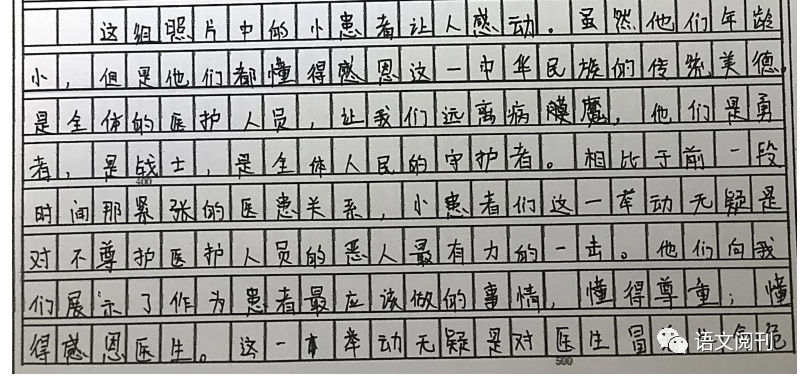 这组照片中的小患者让人感动。虽然他们年龄
小，但是他们都懂得感恩这一中华民族的传统美德。
是全体的医护人员，让我们远离病魔。他们是勇
者，是战士，是全体人民的守护者。相比于前一段
400
时间那紧张的医患关系，小患者们这一举动无疑是
对不尊护医护人员的恶人最有力的一击。他们向我
们展示了作为患者最应该做的事情，懂得尊重；懂
得感恩医生。这一举动无疑是对医生冒 危
500
语文阅刊